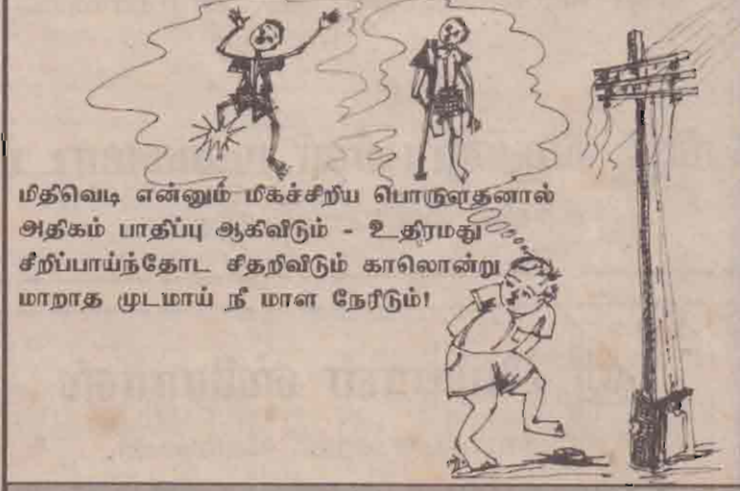 மிதிவெடி என்னும் மிகச்சிறிய பொருளதனால்
அதிகம் பாதிப்பு ஆகிவிடும் - உதிரமது
சீறிப்பாய்ந்தோட சிதறிவிடும் காலொன்று
மாறாத முடமாய் நீ மாள நேரிடும்!